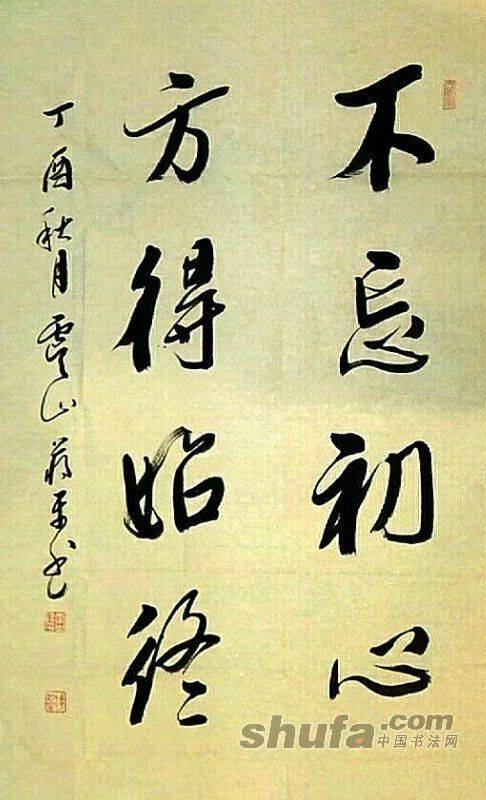 不忘初心
方得始终
丁酉秋月虞山蒋平书
shufa.com
中国书法网